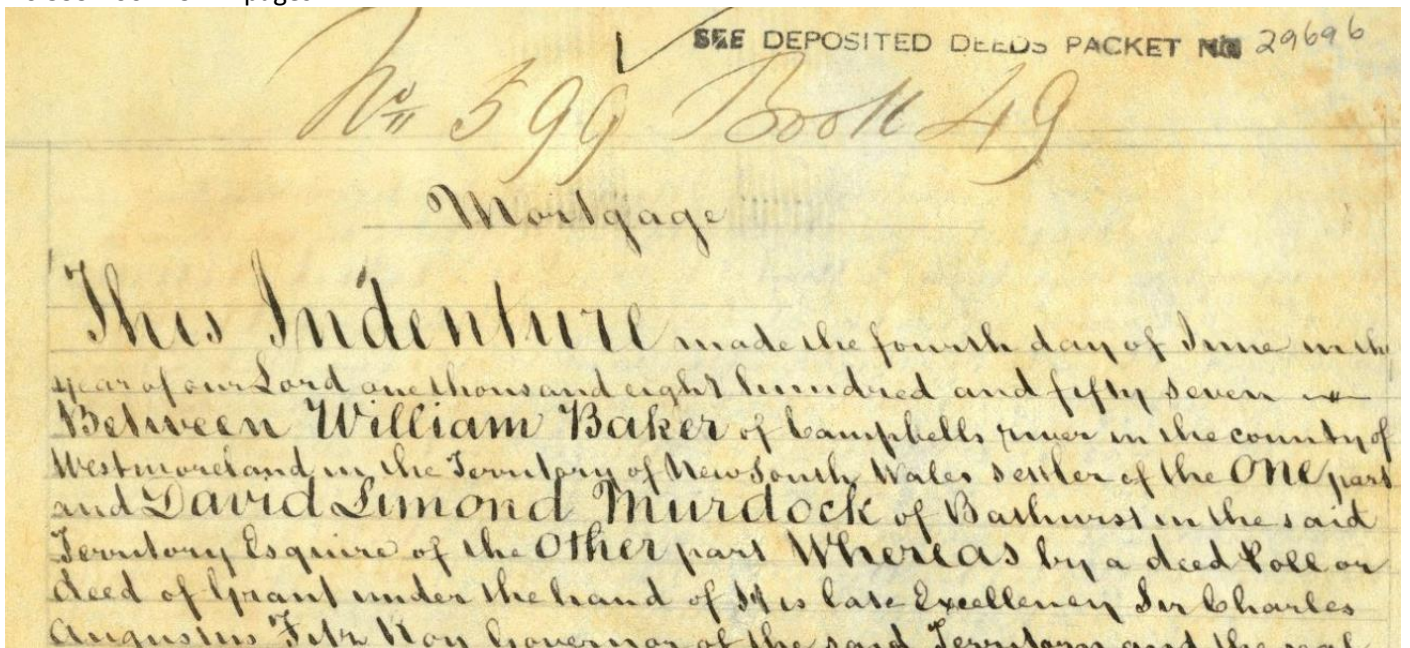 SEE DEPOSITED DEEDS PACKET No 29696
No 599 Book 49
Mortgage
This Indenture made the fourth day of June in the
year of our Lord one thousand eight hundred and fifty seven
Between William Baker of Campbells river in the county of
Westmoreland in the Territory of New South Wales settler of the One part
and David Limond Murdock of Bathurst in the said
Territory Esquire of the Other part Whereas by a deed Poll or
deed of Grant under the hand of His late Excellency Sir Charles
Augustus Fitz Roy Governor of the said Territory and the seal